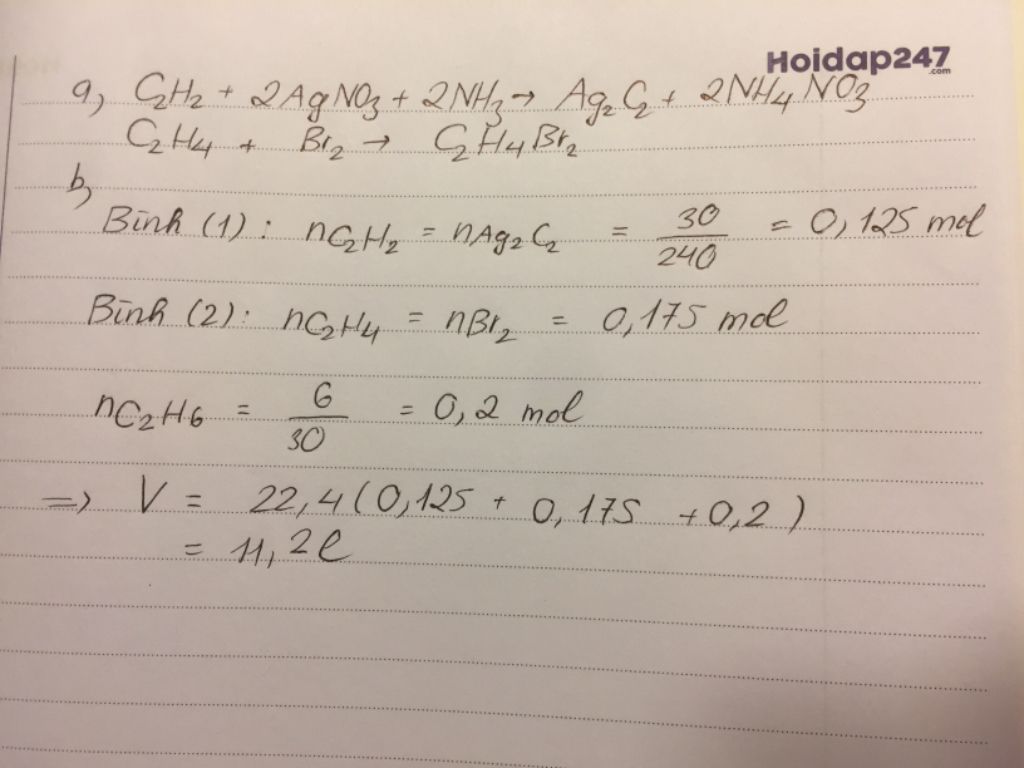 Hoidap247
.com
a, C₂H₂ + 2AgNO₃ + 2NH₃ → Ag₂C₂ + 2NH₄NO₃
C₂H₄ + Br₂ → C₂H₄Br₂
b,
Bình (1): nC₂H₂ = nAg₂C₂ = 30/240 = 0,125 mol
Bình (2): nC₂H₄ = nBr₂ = 0,175 mol
nC₂H₆ = 6/30 = 0,2 mol
=> V = 22,4(0,125 + 0,175 + 0,2)
= 11,2l